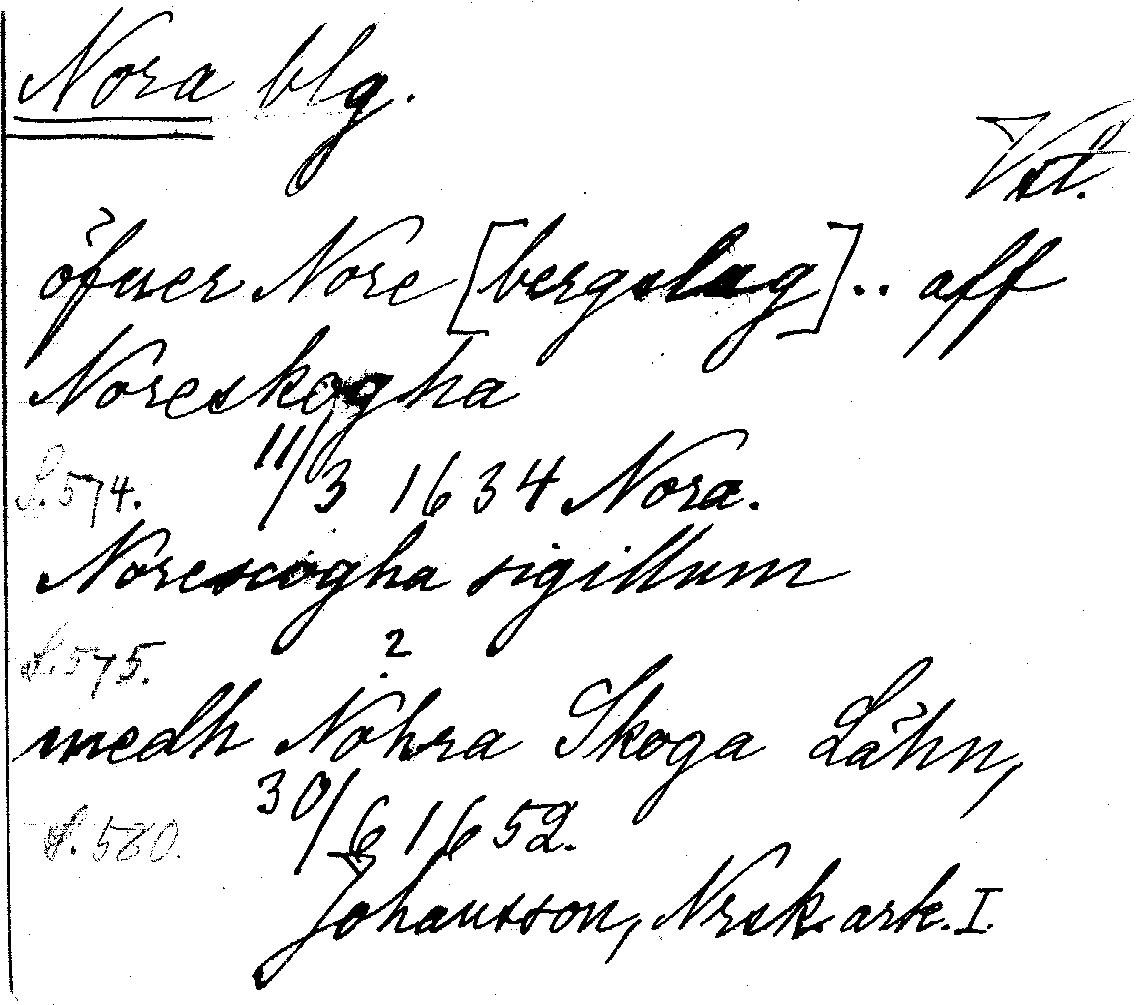 Nora blg.
Vstl.
öfuer Nore [bergslag].. aff
Noreskogha
S.574. 11/3 1634 Nora.
Norescogha sigillum
S.575. 2
medh Nohra Skoga Låhn,
S.580. 30/6 1652.
Johansson, Nrsk. ark. I.